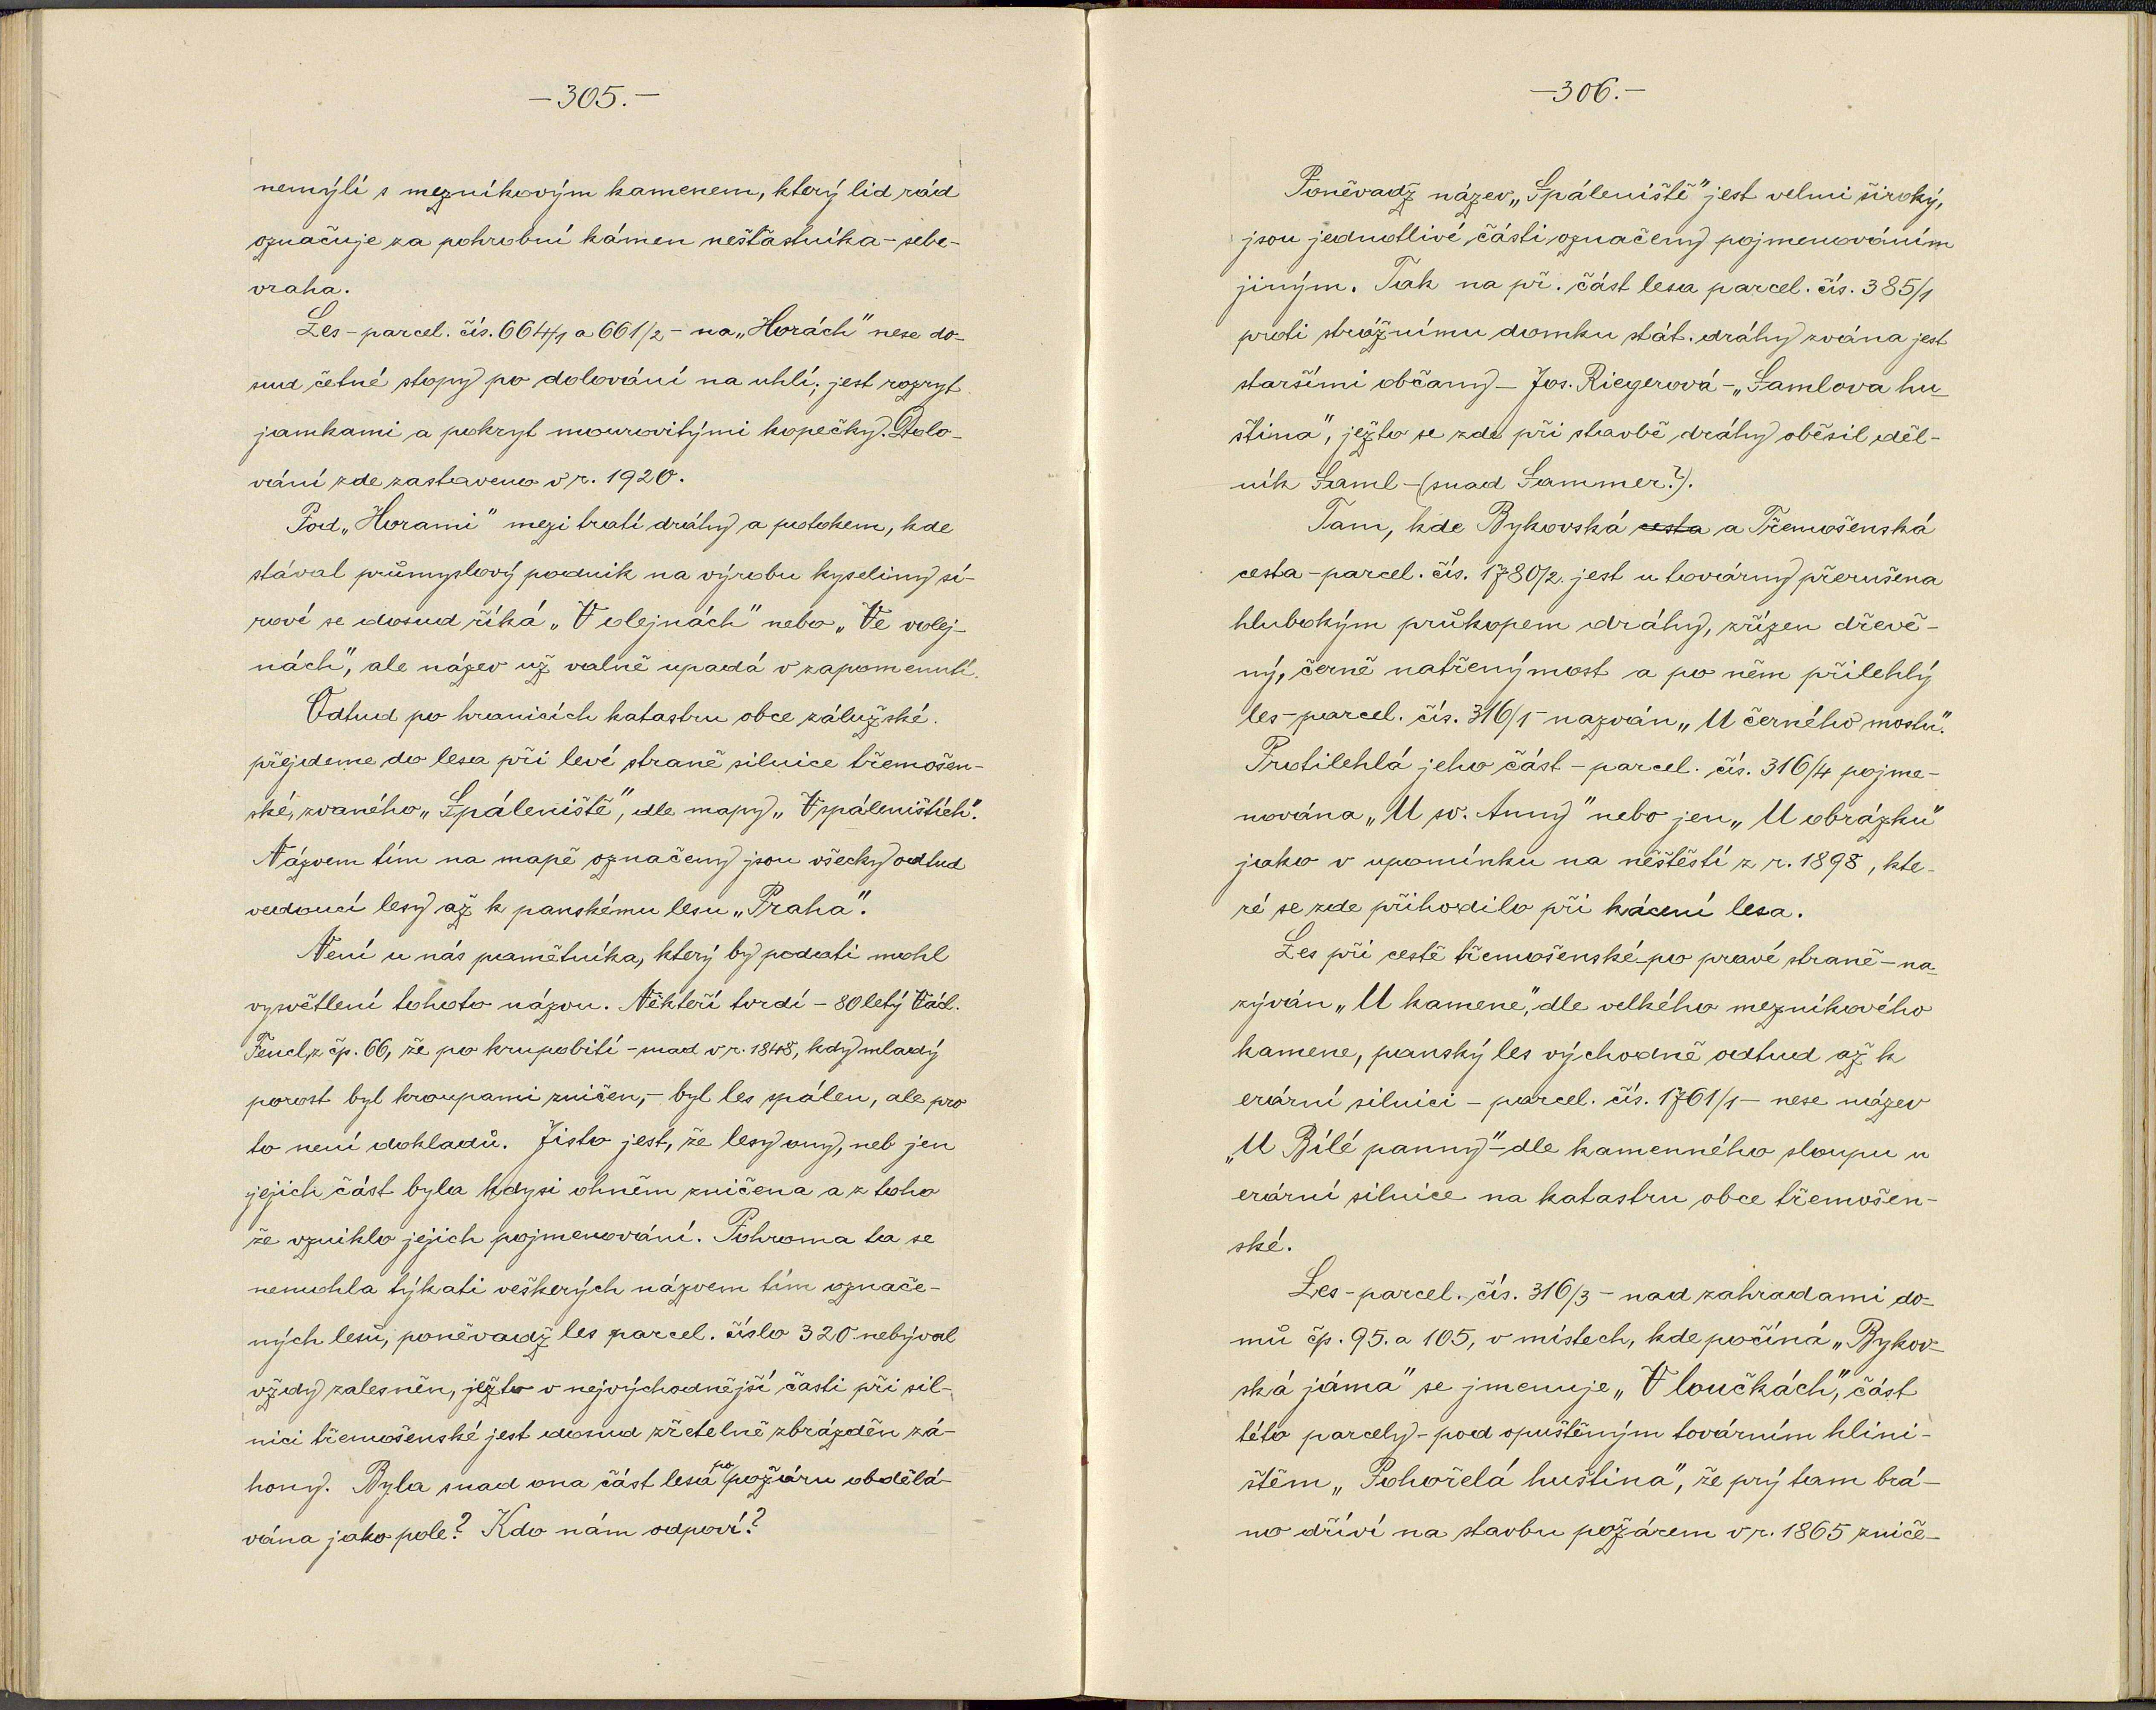 —305.—
nemýlí s mezníkovým kamenem, který lid rád
označuje za pohrobní kámen nešťastníka – sebe-
vraha.
Les – parcel. čís. 664/1 a 661/2 – na „Horách" nese do-
sud četné stopy po dolování na uhlí; jest rozryt
jamkami a pokryt mourovitými kopečky. Dolo-
vání zde zastaveno v r. 1920.
Pod „Horami" mezi tratí dráhy a potokem, kde
stával průmyslový podnik na výrobu kyseliny sí-
rové se dosud říká „V olejnách" nebo „Ve volej-
nách", ale název už valně upadá v zapomenutí.
Odtud po hranicích katastru obce zálužské.
přejdeme do lesa při levé straně silnice třemošen-
ské, zvaného „Spáleniště", dle mapy „V spáleništích".
Názvem tím na mapě označeny jsou všecky odtud
vedoucí lesy až k panskému lesu „Praha".
Není u nás pamětníka, který by podati mohl
vysvětlení tohoto názvu. Někteří tvrdí – 80letý Václ.
Fencl, z čp. 66, že po krupobití – snad v r. 1848, kdy mladý
porost byl kroupami zničen, – byl les spálen, ale pro
to není dokladů. Jisto jest, že lesy ony, neb jen
jejich část byla kdysi ohněm zničena a z toho
že vzniklo jejich pojmenování. Pohroma ta se
nemohla týkati veškerých názvem tím označe-
ných lesů, poněvadž les parcel. číslo 320 nebýval
vždy zalesněn, ježto v nejvýchodnější části při sil-
nici třemošenské jest dosud zřetelně zbrázděn zá-
hony. Byla snad ona část lesa po požáru obdělá-
vána jako pole? Kdo nám odpoví?
—306.—
Poněvadž název „Spáleniště" jest velmi široký,
jsou jednotlivé části označeny pojmenováním
jiným. Tak na př. část lesa parcel. čís. 385/1
proti strážnímu domku stát. dráhy zvána jest
staršími občany – Jos. Riegerová – „Samlova hu-
ština", ježto se zde při stavbě dráhy oběsil děl-
ník Saml – (snad Sammer?).
Tam, kde Bykovská cesta a Třemošenská
cesta – parcel. čís. 1780/2. jest u továrny přerušena
hlubokým průkopem dráhy, zřízen dřevě-
ný, černě natřený most a po něm přilehlý
les – parcel. čís. 316/1 – nazván „U černého mostu".
Protilehlá jeho část – parcel. čís. 316/4 pojme-
nována „U sv. Anny" nebo jen „U obrázku"
jako v upomínku na neštěstí z r. 1898, kte-
ré se zde přihodilo při kácení lesa.
Les při cestě třemošenské – po pravé straně – na-
zýván „U kamene", dle velkého mezníkového
kamene, panský les východně odtud až k
erární silnici – parcel. čís. 1761/1 – nese název
„U Bílé panny" – dle kamenného sloupu u
erární silnice na katastru obce třemošen-
ské.
Les – parcel. čís. 316/3 – nad zahradami do-
mů čp. 95. a 105, v místech, kde počíná „Bykov-
ská jáma" se jmenuje „V loučkách", část
této parcely – pod opuštěným továrním hlini-
štěm „Pohořelá huština", že prý tam brá-
no dříví na stavbu požárem v r. 1865 zniče-